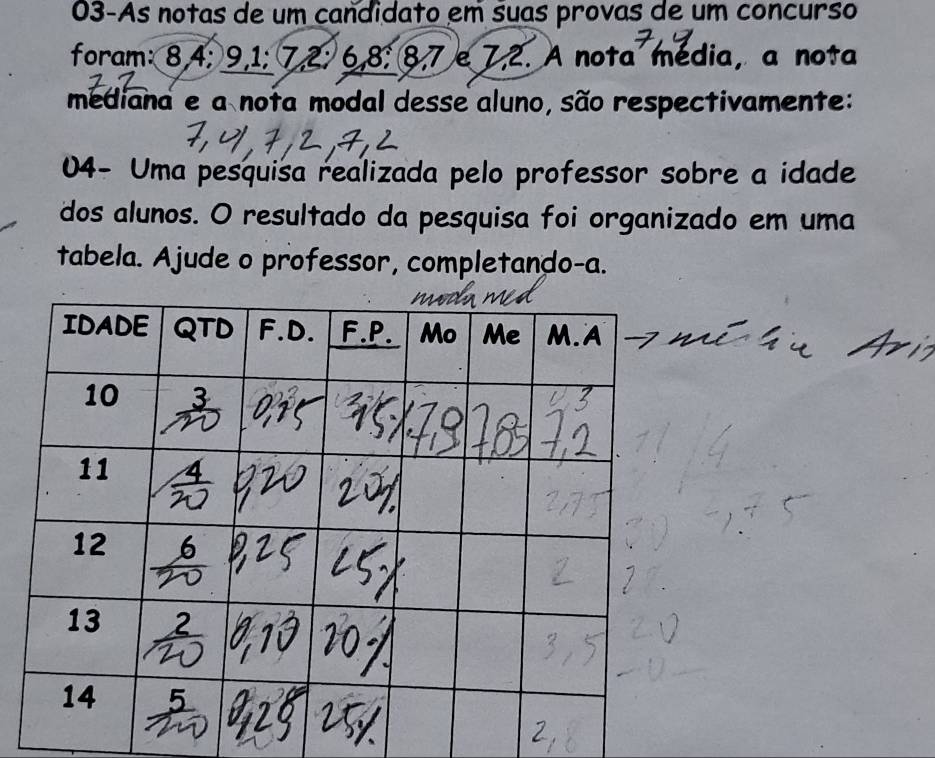 03-As notas de um candidato em suas provas de um concurso
7,9
foram: 8,4; 9,1; 7,2; 6,8; 8,7 e 7,2. A nota média, a nota
7,2
mediana e a nota modal desse aluno, são respectivamente:
7,9, 7,2, 7,2
04- Uma pesquisa realizada pelo professor sobre a idade
dos alunos. O resultado da pesquisa foi organizado em uma
tabela. Ajude o professor, completando-a.
moda med
IDADE QTD F.D. F.P. Mo Me M.A → média Arit
10 3/20 0,15 15% 7,9 7,85 7,2
11 4/20 0,20 20%
12 6/20 0,25 25% 2
13 2/20 0,10 10% 3,5 20
14 5/20 0,25 25% 2,8